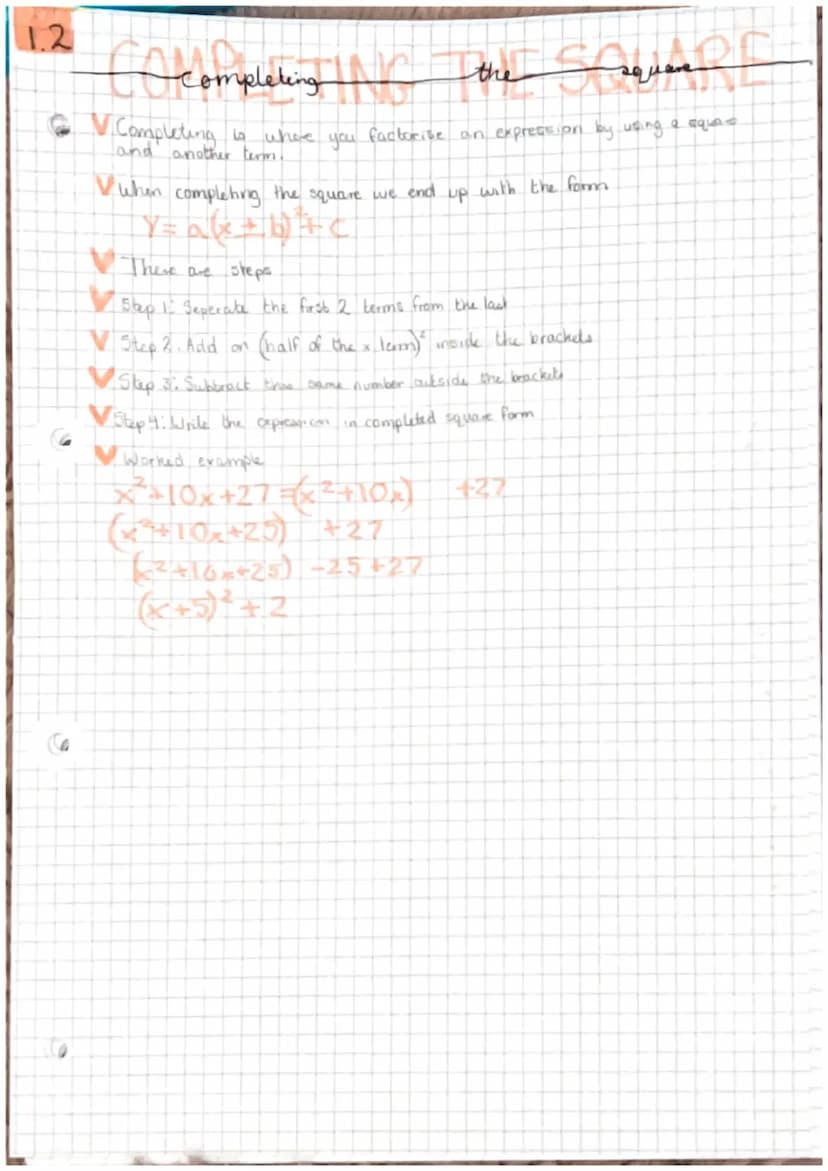 1.2
COMPLETING THE SQUARE
Completing the square
Completing is where you factorise an expression by using a square
and another term.
When completing the square we end up with the form
Y = a(x ± b)² + c
There are steps
Step 1: Seperate the first 2 terms from the last
Step 2: Add on (half of the x term)² inside the brackets
Step 3: Subtract that same number outside the brackets
Step 4: Write the expression in completed square form
Worked example
x²+10x+27 =(x²+10x) +27
(x²+10x+25) +27
(x²+10x+25) -25+27
(x+5)² + 2